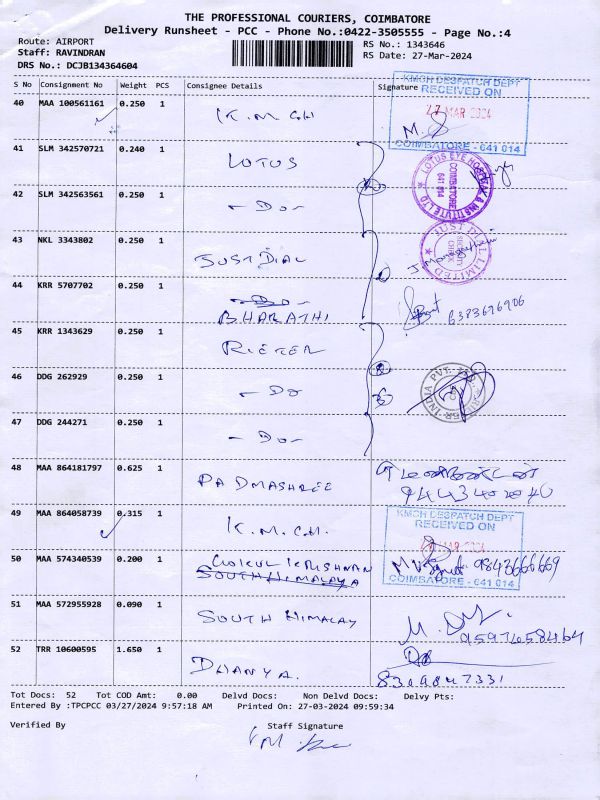 THE PROFESSIONAL COURIERS, COIMBATORE
Delivery Runsheet - PCC - Phone No.:0422-3505555 - Page No.:4
Route: AIRPORT
Staff: RAVINDRAN
DRS No.: DCJB134364604
RS No.: 1343646
RS Date: 27-Mar-2024
S No Consignment No Weight PCS Consignee Details Signature
KMCH DESPATCH DEPT
RECEIVED ON
27 MAR 2024
COIMBATORE - 641 014
40 MAA 100561161 0.250 1 K.M.C.H
41 SLM 342570721 0.240 1 LOTUS
LOTUS EYE HOSPITAL & INSTITUTE LTD
COIMBATORE
641 014
42 SLM 342563561 0.250 1 - Do -
43 NKL 3343802 0.250 1 JUST DIAL
JUST DIAL LIMITED
SECURITY
CHECK
44 KRR 5707702 0.250 1 - Do -
BHARATHI
6383696906
45 KRR 1343629 0.250 1 RIETER
46 DDG 262929 0.250 1 - Do
INDIA PVT.
47 DDG 244271 0.250 1 - Do -
48 MAA 864181797 0.625 1 PADMASHREE
49 MAA 864058739 0.315 1 K.M.C.H.
KMCH DESPATCH DEPT
RECEIVED ON
MAR 2024
COIMBATORE - 641 014
50 MAA 574340539 0.200 1 GOKUL KRISHNAN
SOUTH HIMALAYA
9843666669
51 MAA 572955928 0.090 1 SOUTH HIMALAY
52 TRR 10600595 1.650 1 DHANYA.
Tot Docs: 52 Tot COD Amt: 0.00 Delvd Docs: Non Delvd Docs: Delvy Pts:
Entered By :TPCPCC 03/27/2024 9:57:18 AM Printed On: 27-03-2024 09:59:34
Verified By Staff Signature